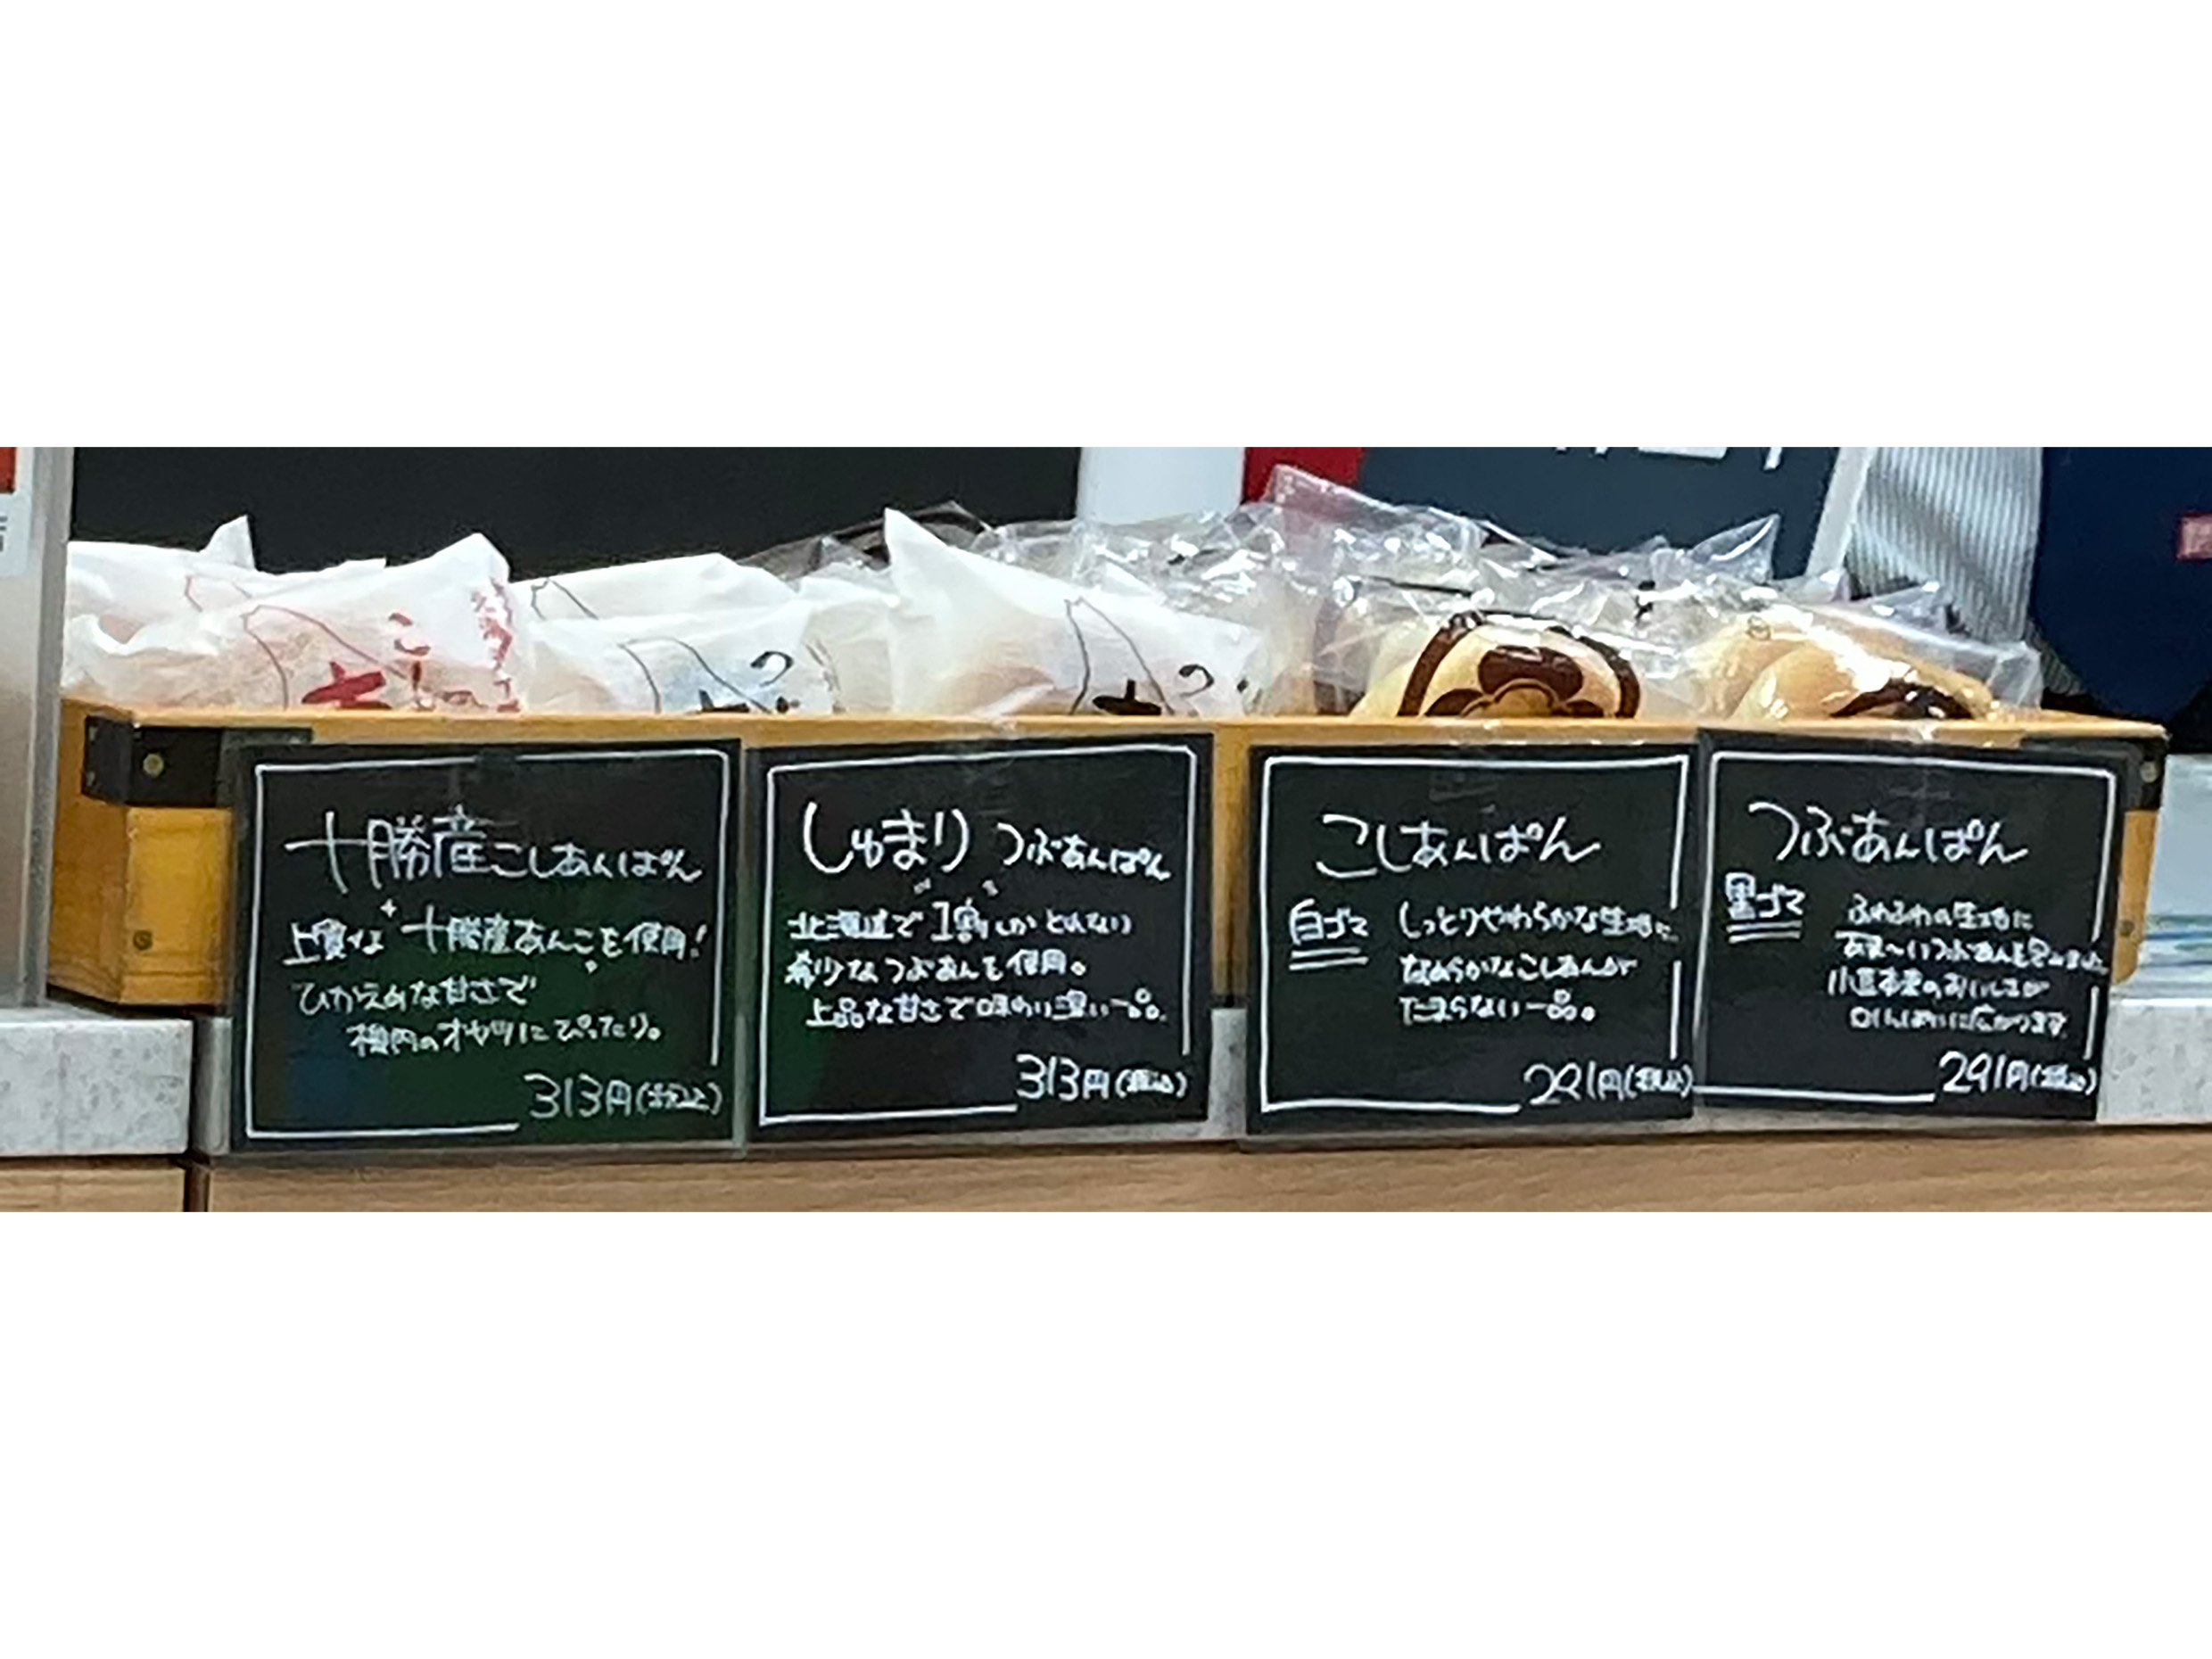 十勝産こしあんぱん
上質な 十勝産あんこを使用!
ひかえめな甘さで
機内のオヤツにぴったり。
313円(税込)
しゅまり つぶあんぱん
北海道で1割しかとれない
希少なつぶあんを使用。
上品な甘さで味わい濃い一品。
313円(税込)
こしあんぱん
白ゴマ
しっとりやわらかな生地に
なめらかなこしあんが
たまらない一品。
291円(税込)
つぶあんぱん
黒ゴマ
ふわふわの生地に
あま〜いつぶあんを包みました
小豆本来のおいしさが
口いっぱいに広がります
291円(税込)